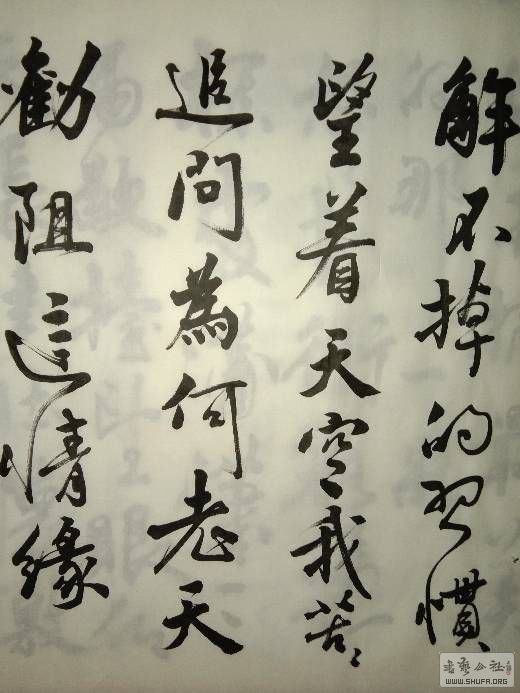 解不掉的習慣
望着天空我苦〻
追問為何老天
勸阻這情緣
書藝公社
WWW.SHUFA.ORG